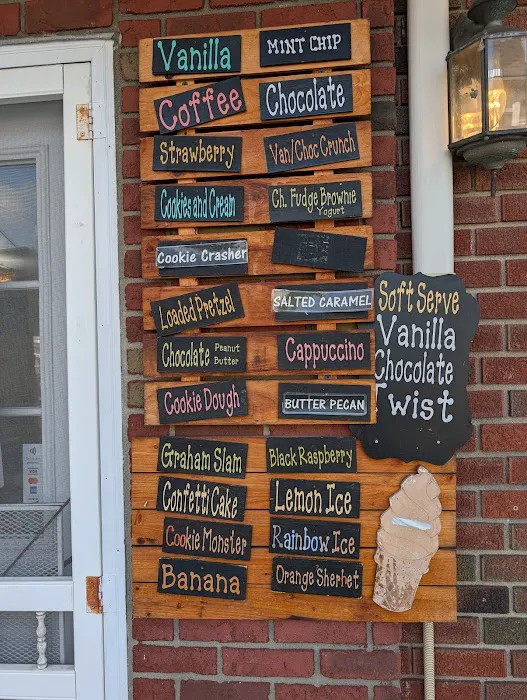 Vanilla
MINT CHIP
Coffee
Chocolate
Strawberry
Van/Choc Crunch
Cookies and Cream
Ch. Fudge Brownie
Yogurt
Cookie Crasher
Loaded Pretzel
SALTED CARAMEL
Chocolate Peanut
Butter
Cappuccino
Cookie Dough
BUTTER PECAN
Soft Serve
Vanilla
Chocolate
Twist
Graham Slam
Black Raspberry
Confetti Cake
Lemon Ice
Cookie Monster
Rainbow Ice
Banana
Orange Sherbet